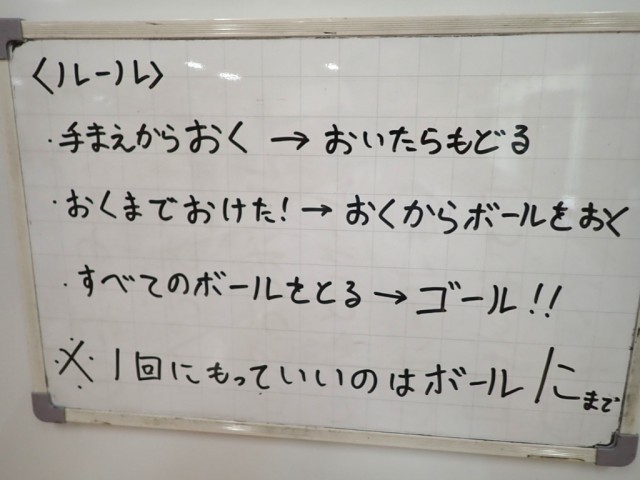 〈ルール〉
・手まえからおく → おいたらもどる
・おくまでおけた! → おくからボールをおく
・すべてのボールをとる → ゴール!!
※ 1回にもっていいのはボール1こまで